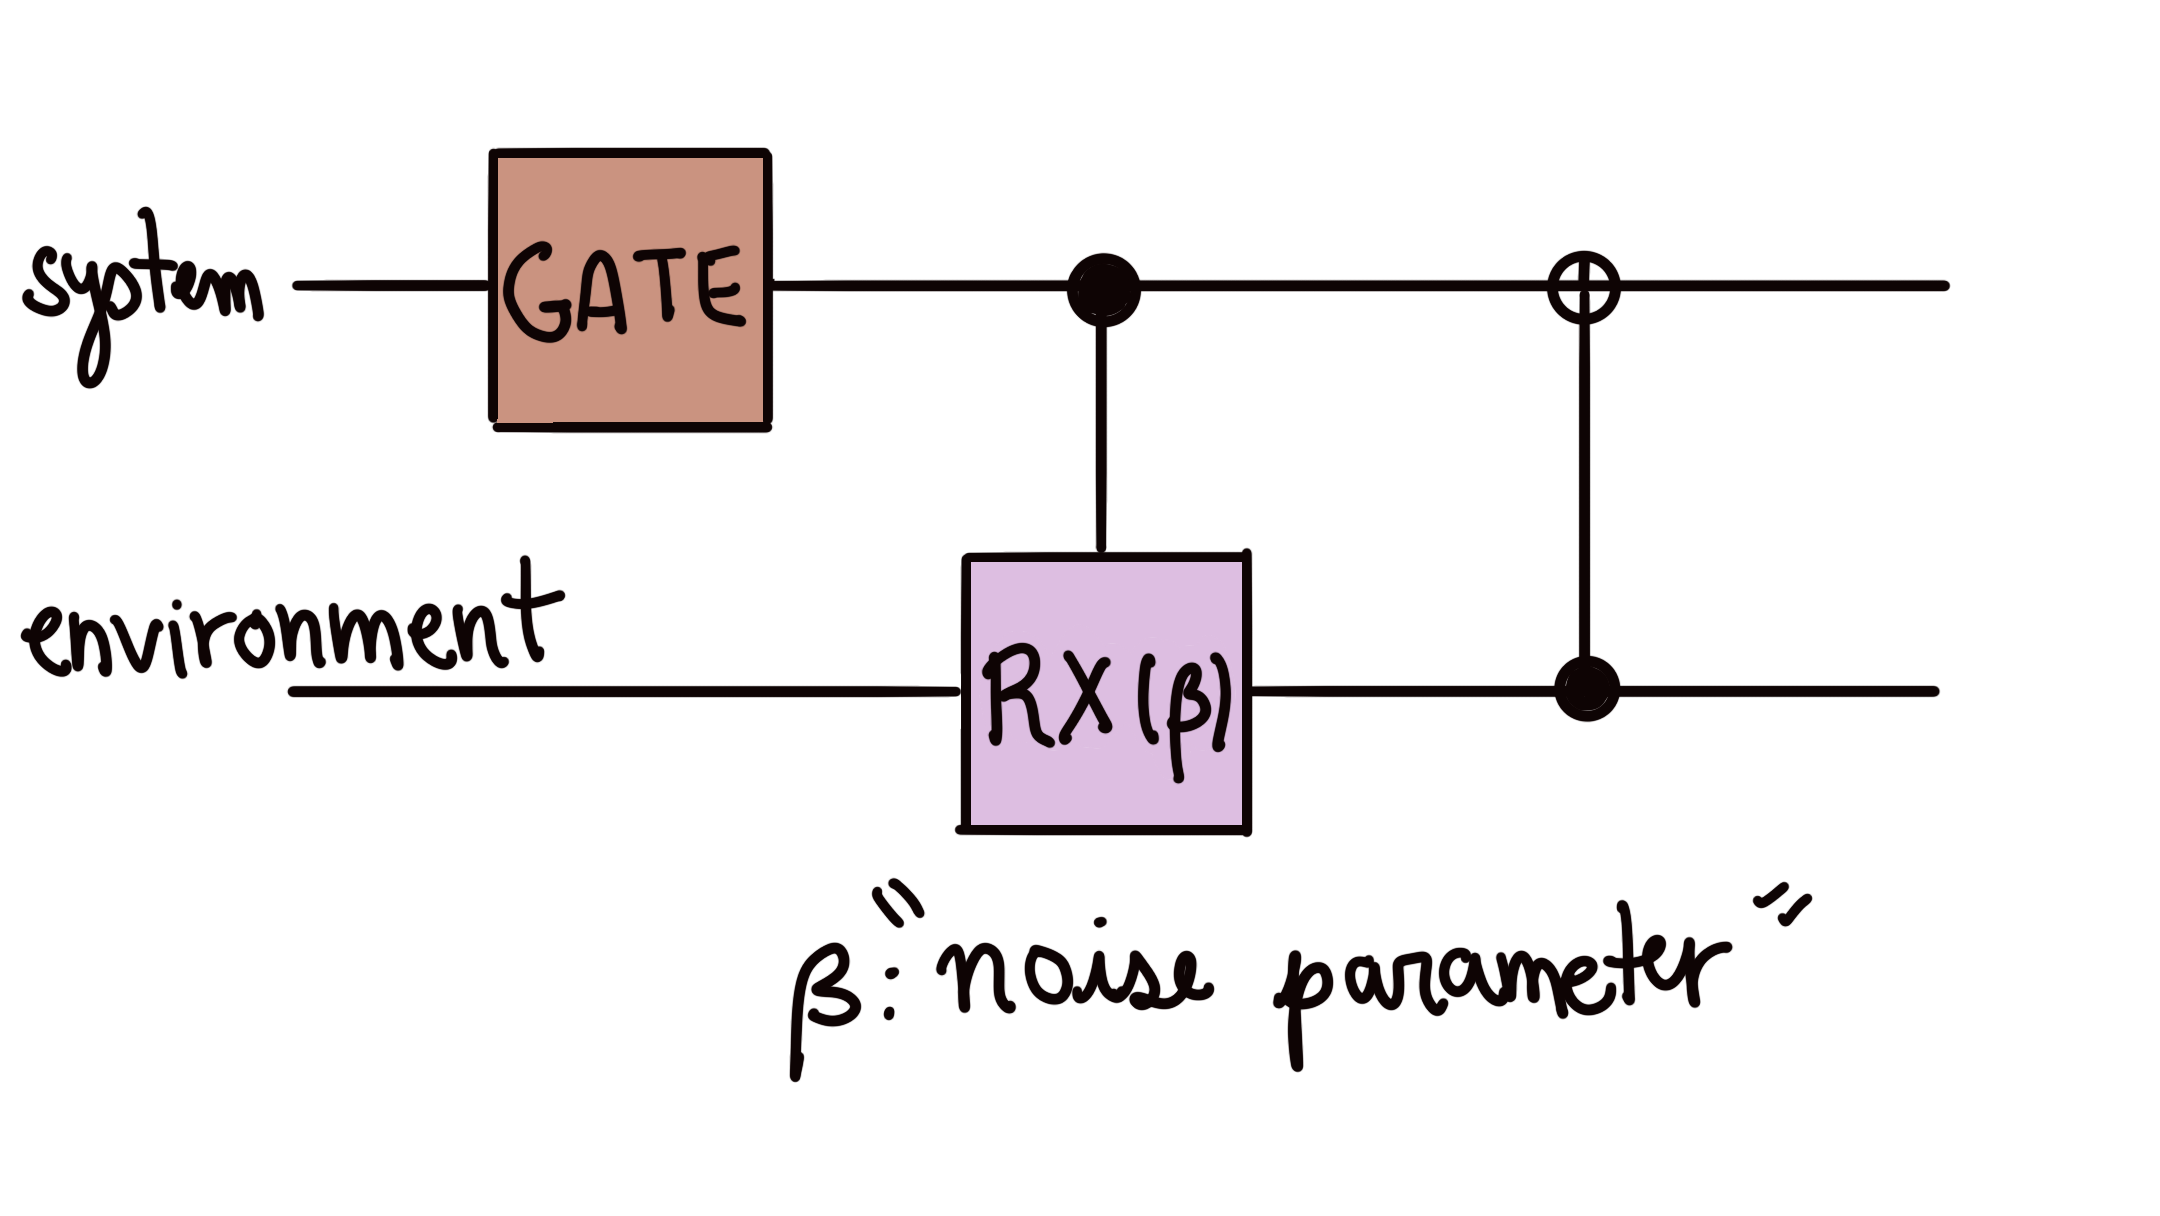 system
GATE
environment
RX(β)
β: "noise parameter"